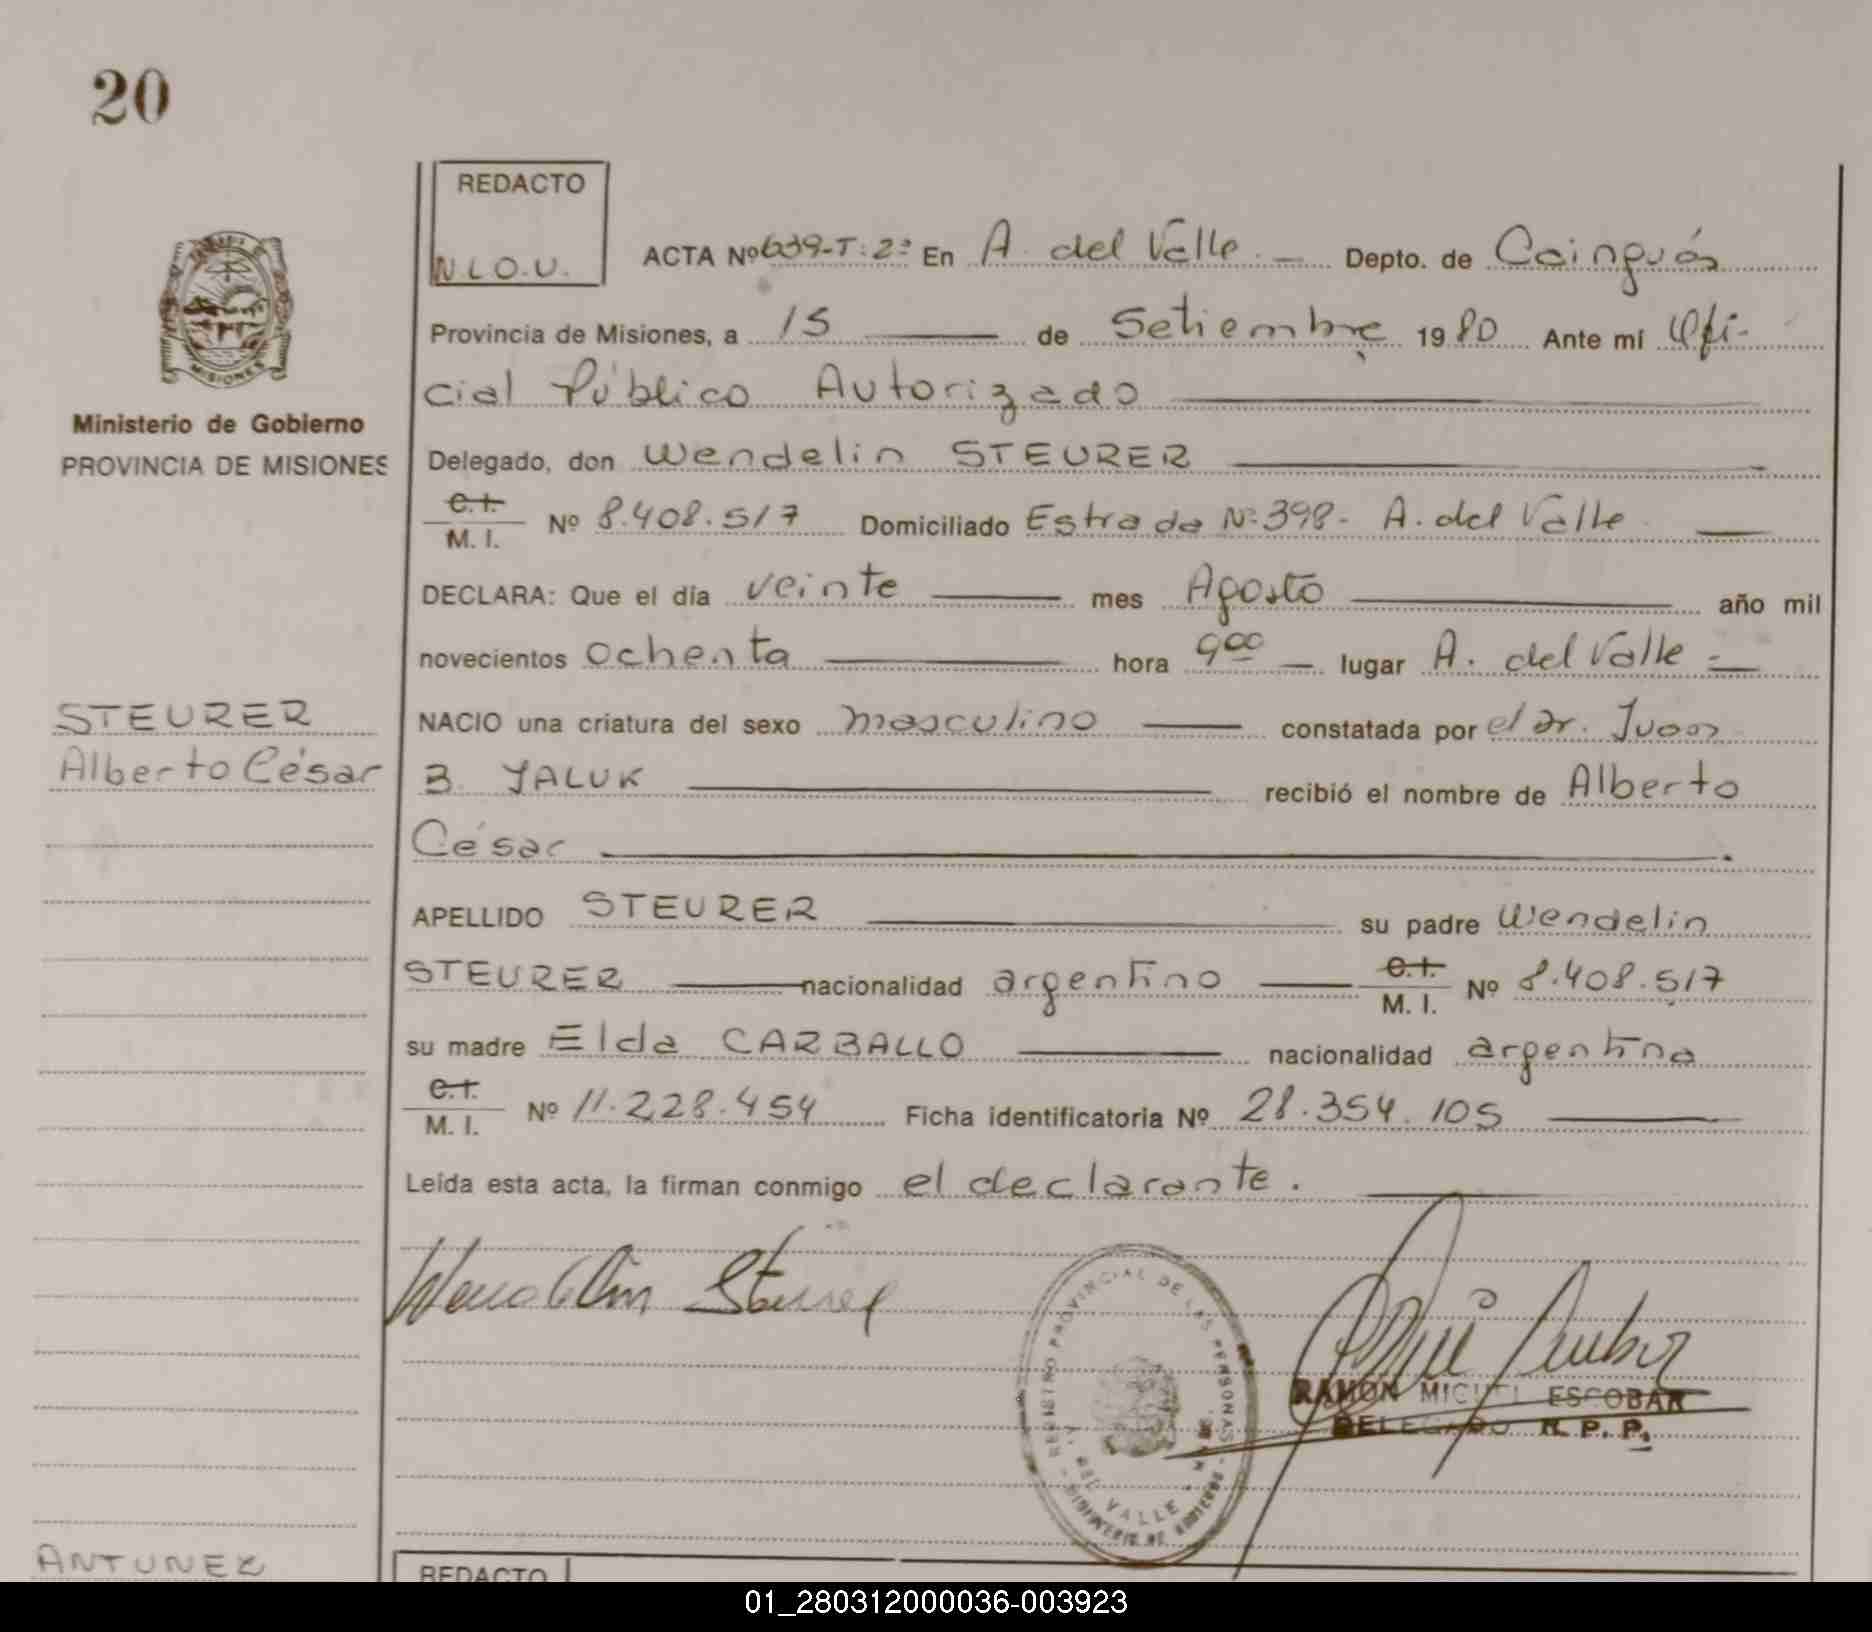 20
REDACTO
N.L.O.U.
ACTA Nº 639-T:2ª En A. del Valle.- Depto. de Cainguás
Provincia de Misiones, a 15 de Setiembre 1980 Ante mí Ofi-
cial Público Autorizado
Ministerio de Gobierno
PROVINCIA DE MISIONES
Delegado, don Wendelin STEURER
C.I.
M. I. Nº 8.408.517 Domiciliado Estrada Nº 398- A. del Valle
DECLARA: Que el día veinte mes Agosto año mil
novecientos ochenta hora 9 00 lugar A. del Valle -
STEURER
Alberto César
NACIO una criatura del sexo masculino constatada por el dr. Juan
B. YALUK recibió el nombre de Alberto
César .
APELLIDO STEURER su padre Wendelin
STEURER nacionalidad argentino C.I. M. I. Nº 8.408.517
su madre Elda CARBALLO nacionalidad argentina
C.I.
M. I. Nº 11.228.454 Ficha identificatoria Nº 28.354.105
Leída esta acta, la firman conmigo el declarante.
Wendelin Steurer
REGISTRO PROVINCIAL DE LAS PERSONAS
DEL VALLE
RAMON MIGUEL ESCOBAR
DELEGADO R. P. P.
ANTUNEZ
REDACTO
01_280312000036-003923